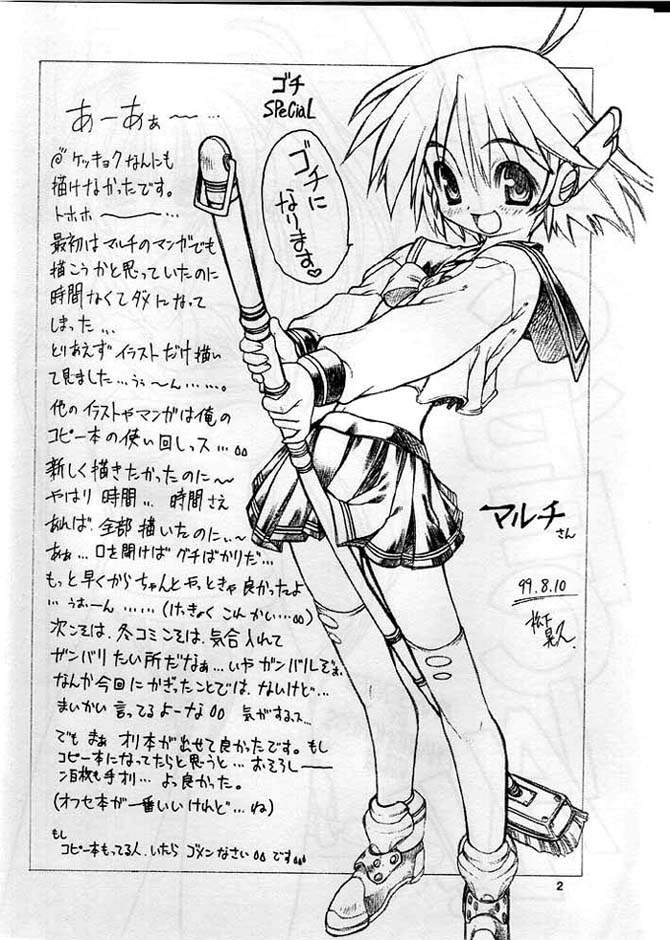 ゴチ
SPeCiaL
ゴチに
なります♡
あーあぁ〜…
ケッキョクなんにも
描けなかったです。
トホホ〜…
最初はマルチのマンガでも
描こうかと思っていたのに
時間なくてダメになって
しまった…
とりあえずイラストだけ描い
て見ました…うぅ〜ん……。
他のイラストやマンガは俺の
コピー本の使い回しっス…
新しく描きたかったのに〜
やはり時間…時間さえ
あれば全部描いたのにぃ〜
あぁ…口を開けばグチばかりだ…
もっと早くからちゃんとやっときゃ良かったよ
…うおーん……(けっきょくこんかい…)
次こそは、冬コミこそは、気合入れて
ガンバリたい所だなぁ…いやガンバルぞぉ、
なんか今回にかぎったことでは、ないけど…
まいかい言ってるよーな 気がするっス…
でもまぁオリ本が出せて良かったです。もし
コピー本になってたらと思うと…おそろしー
百枚も手オリ…よっ良かった。
(オフセ本が一番いいけれど…ね)
もし
コピー本もってる人、いたらゴメンなさい です
マルチさん
99.8.10
2